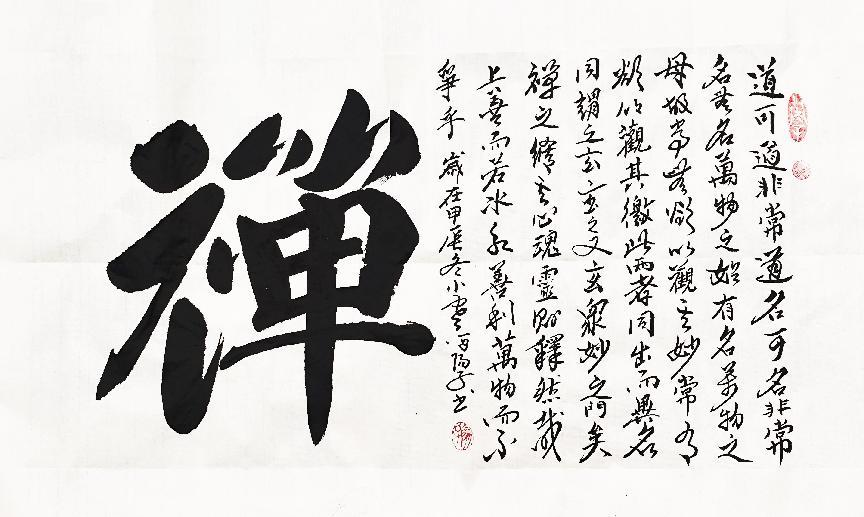 道可道非常道名可名非常
名無名萬物之始有名萬物之
母故常無欲以觀其妙常有
欲以觀其徼此兩者同出而異名
同謂之玄玄之又玄眾妙之門矣
禪之其心魂靈則釋然哉
上善而若水水善利萬物而不
爭乎 歲在甲辰冬小雪陽子書
禪